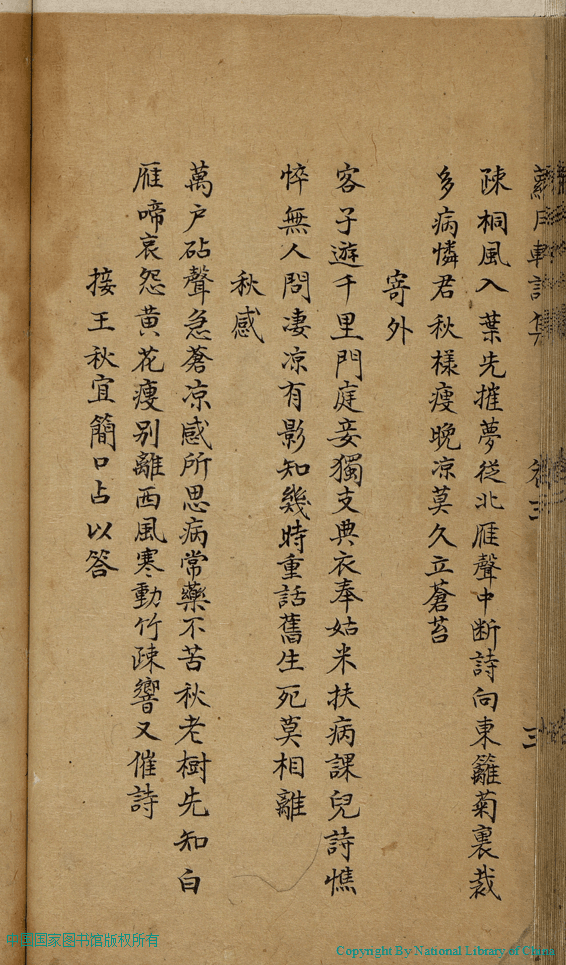 疎桐風入葉先摧夢從北雁聲中断詩向東籬菊裏裁
多病憐君秋様瘦晩凉莫久立蒼苔
寄外
客子遊千里門庭妾獨支典衣奉姑米扶病課兒詩憔
悴無人問凄凉有影知幾時重話舊生死莫相離
秋感
萬户砧聲急蒼凉感所思病常藥不苦秋老樹先知白
雁啼哀怨黄花瘦别離西風寒動竹疎響又催詩
接王秋宜簡口占以答
中国国家图书馆版权所有
Copyright By National Library of China